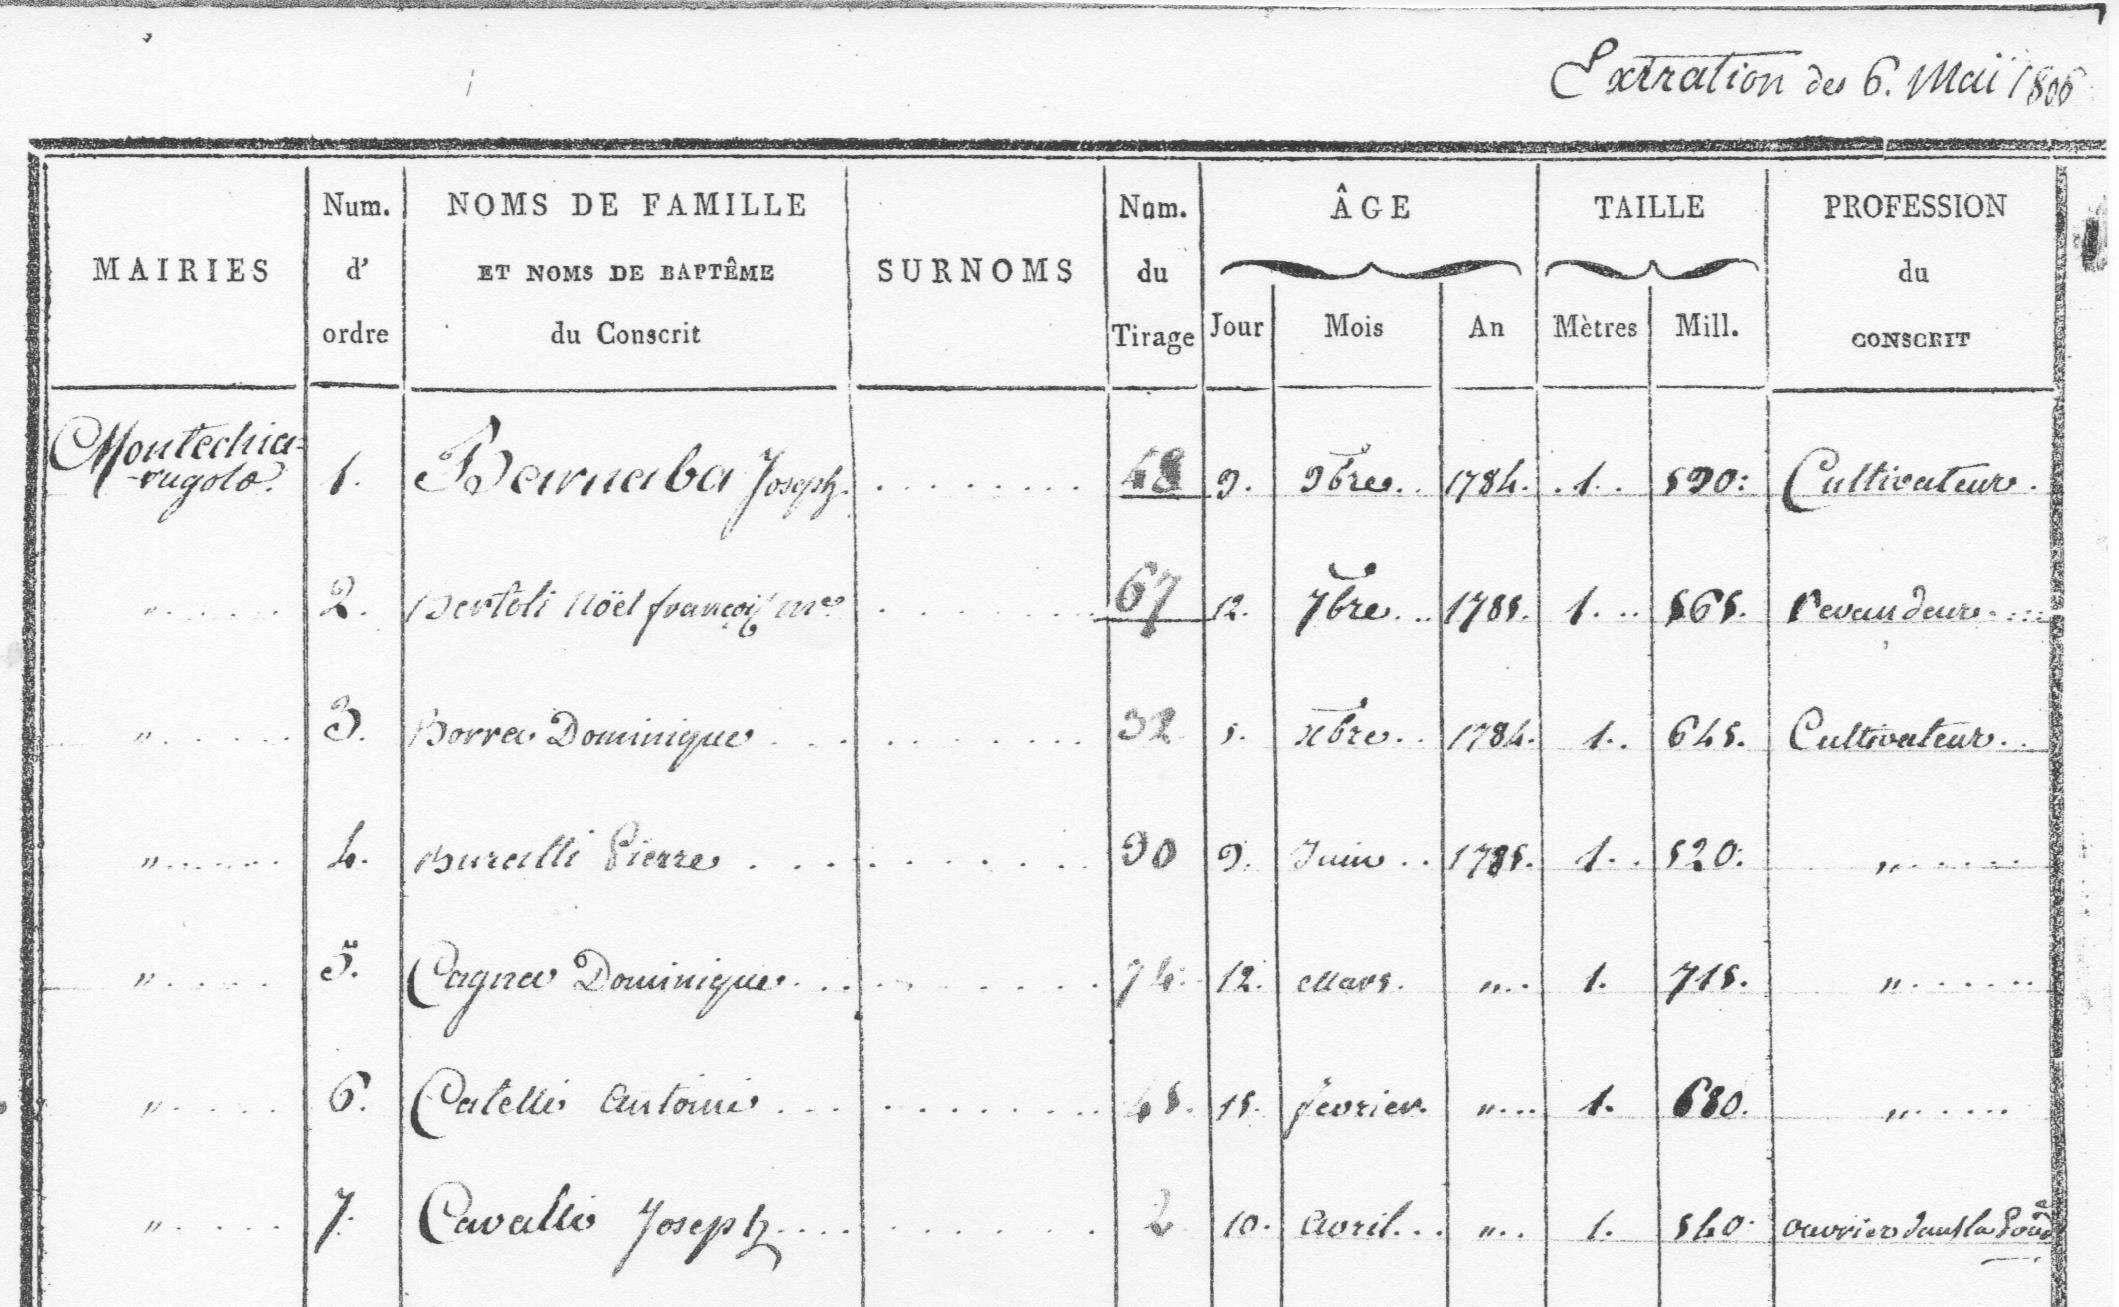 Extration des 6. Maï 1806
MAIRIES
Num. d' ordre
NOMS DE FAMILLE
ET NOMS DE BAPTÊME
du Conscrit
SURNOMS
Num. du Tirage
ÂGE
Jour Mois An
TAILLE
Mètres Mill.
PROFESSION
du
CONSCRIT
Montechia=
-rugolo. 1. Barnaba Joseph. . . . . . . . . 48 9. 9bre. . 1784. . 1. . 590: Cultivateur.
" . . . . . 2. Bertoli Nöel françois . . . . . 67 12. 7bre. . . 1785. 1. . . 565. Revandeur . . . .
" . . . . . 3. Borra Dominique . . . . . . . . 32 5. xbre. . 1784. 1. . 645. Cultivateur. .
" . . . . . 4. Buralli Pierre . . . . . . . . . 90 9. Juin . . 1785. 1. . . 520. " . . . . .
" . . . . 5. Cagna Dominique. . . . . . . . . 74. 12. Mars. " . . 1. 715. " . . . . . .
" . . . . . 6. Catelli Antoine . . . . . . . . . 45. 15. fevrier. " . . . 1. 680. " . . . . .
" . . . . . 7. Cavalli Joseph . . . . . . . . . 2 10. Avril. . . " . . 1. 540. ouvrier dans la